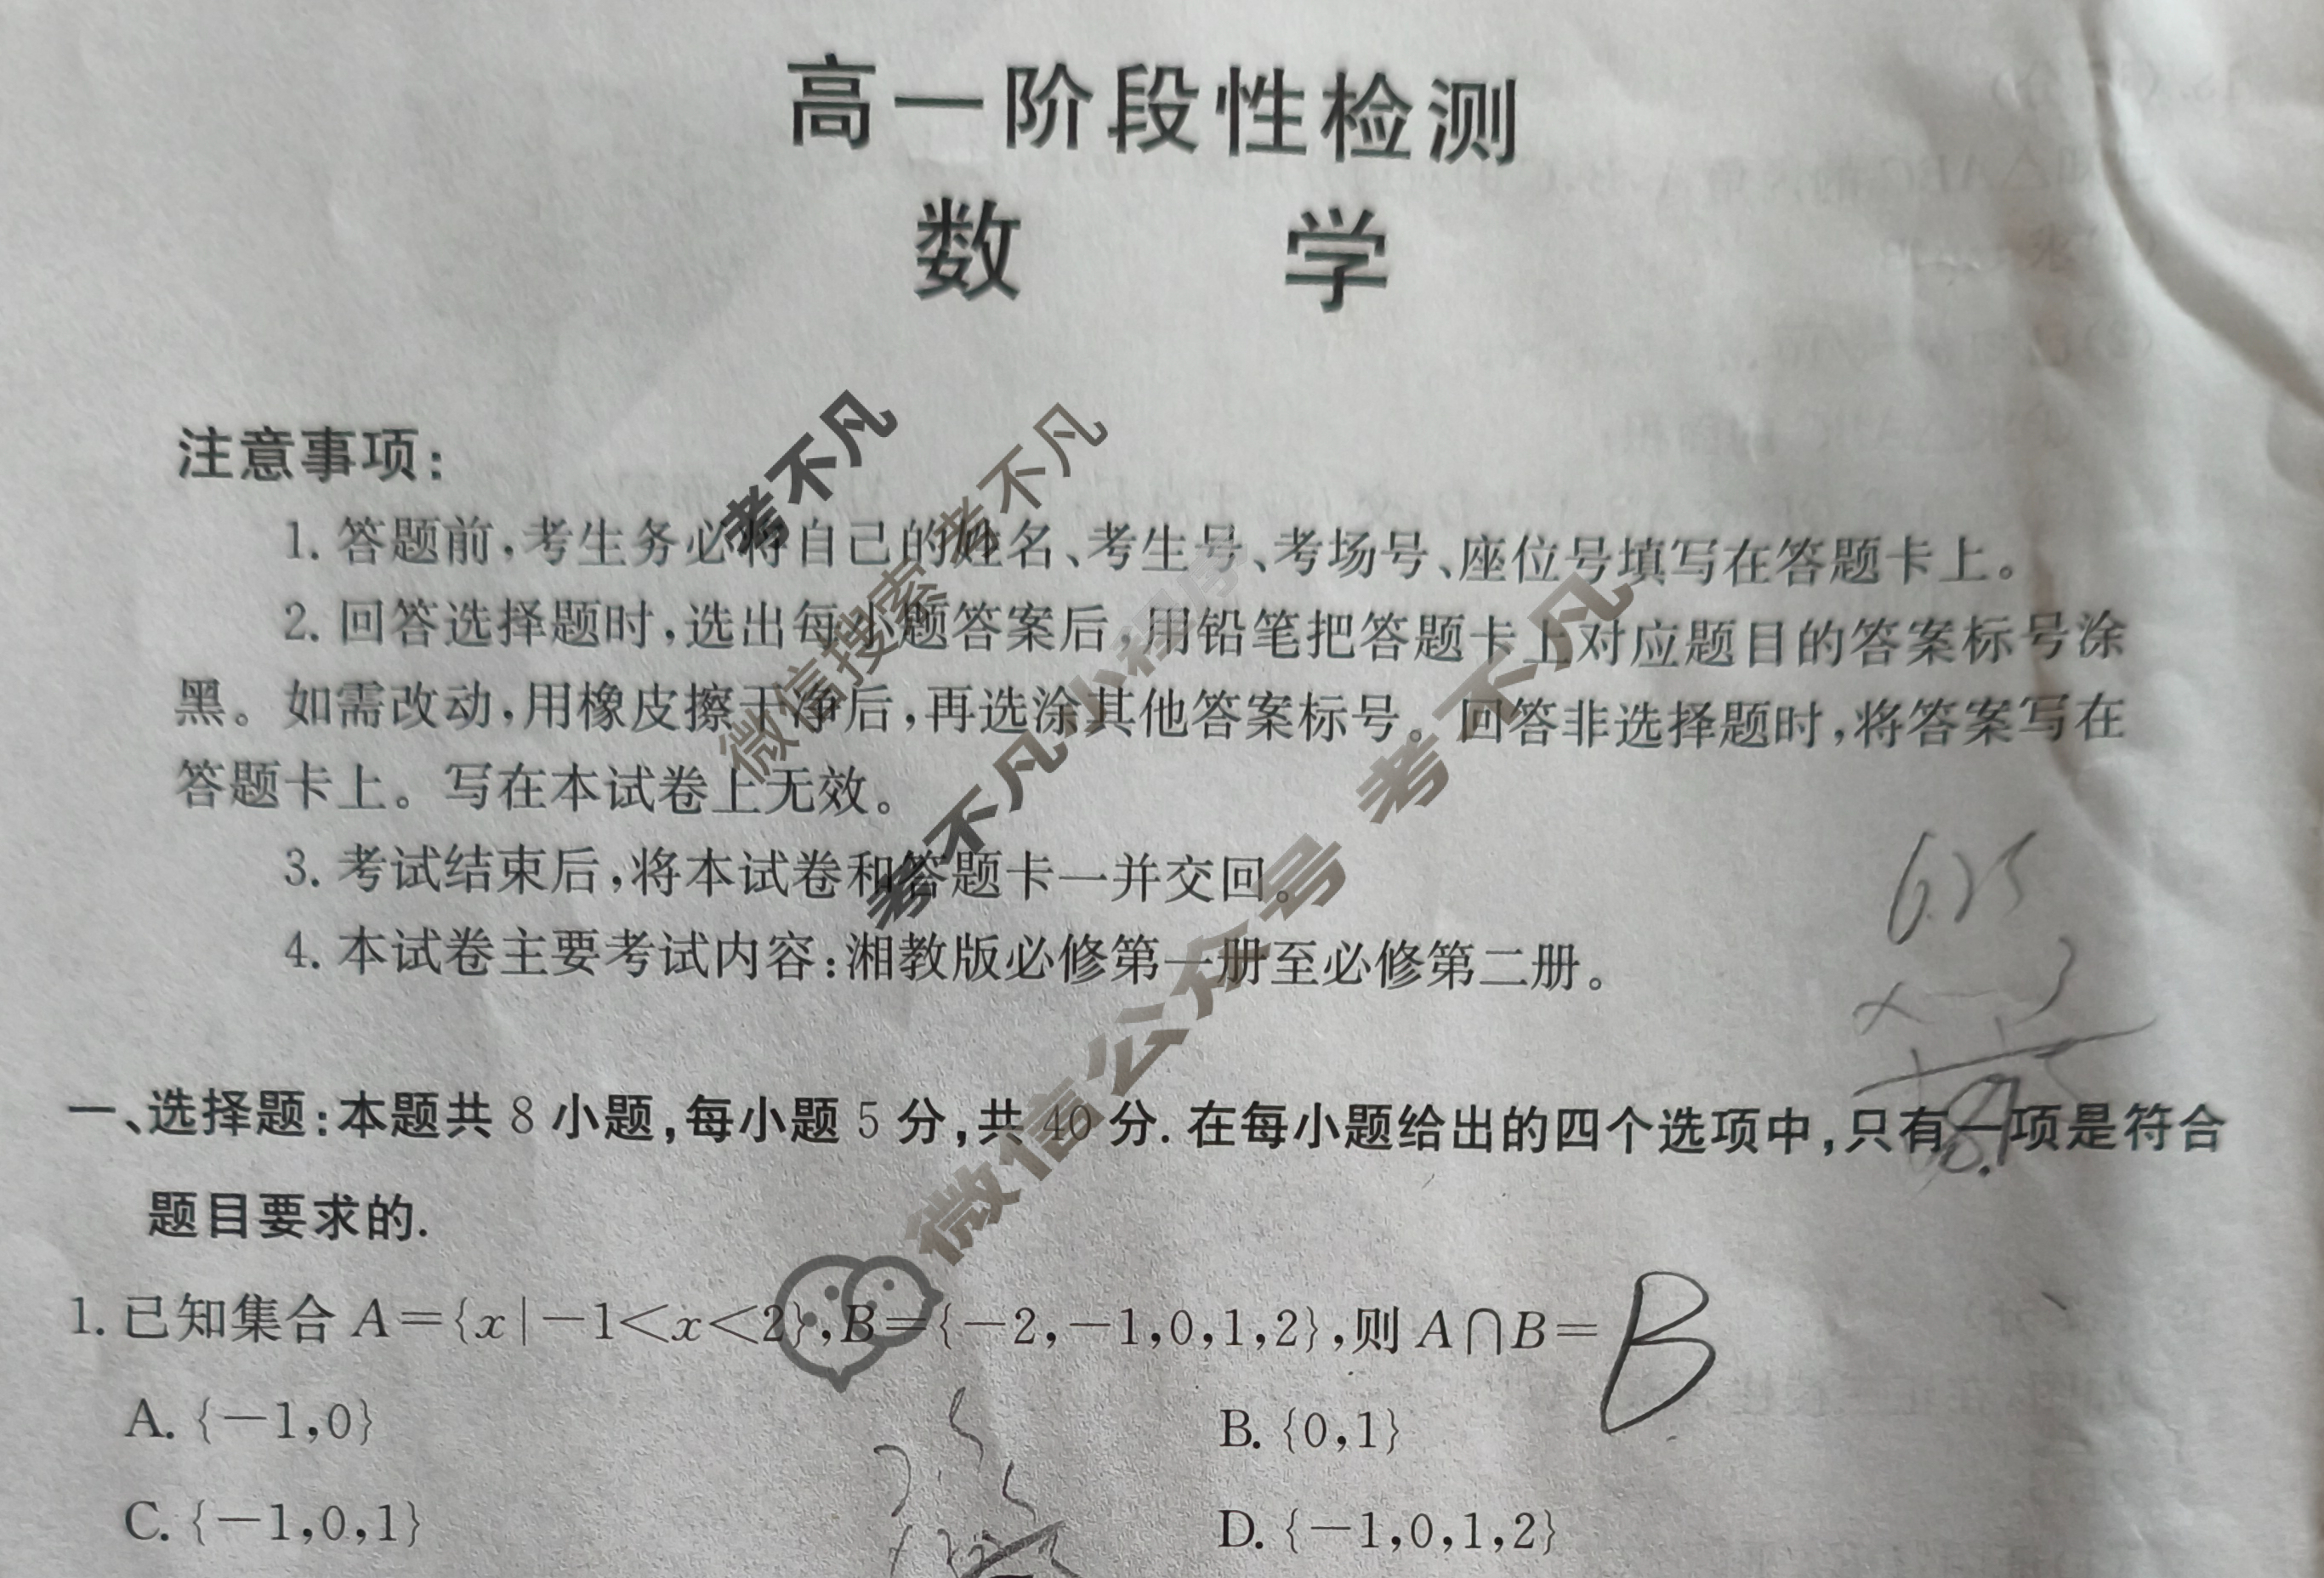 高一阶段性检测
数 学
注意事项:
1. 答题前,考生务必将自己的姓名、考生号、考场号、座位号填写在答题卡上。
2. 回答选择题时,选出每小题答案后,用铅笔把答题卡上对应题目的答案标号涂
黑。如需改动,用橡皮擦干净后,再选涂其他答案标号。回答非选择题时,将答案写在
答题卡上。写在本试卷上无效。
3. 考试结束后,将本试卷和答题卡一并交回。
4. 本试卷主要考试内容:湘教版必修第一册至必修第二册。
考不凡
微信搜索 考不凡
考不凡小程序
微信公众号 考不凡
6.25
× 3
一、选择题:本题共 8 小题,每小题 5 分,共 40 分. 在每小题给出的四个选项中,只有一项是符合
题目要求的.
1. 已知集合 A={x|-1<x<2},B={-2,-1,0,1,2},则 A∩B= B
A. {-1,0} B. {0,1}
C. {-1,0,1} D. {-1,0,1,2}